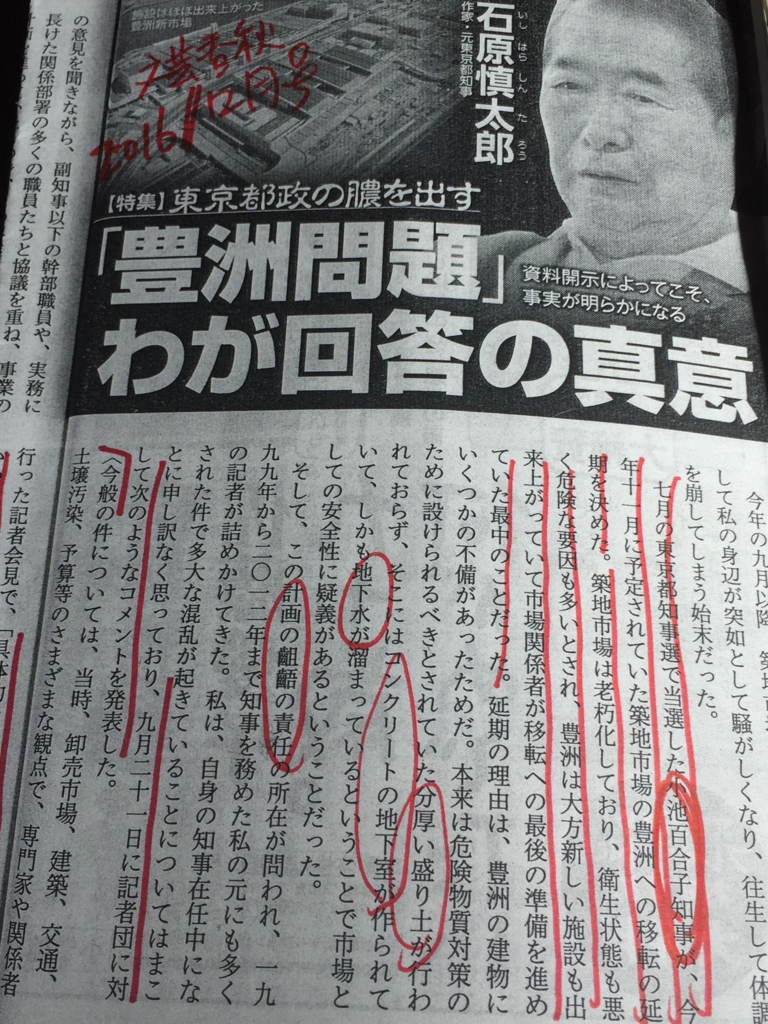 施設はほぼ出来上がった
豊洲新市場
文芸春秋
2016/12月号
石原慎太郎
いしはらしんたろう
作家・元東京都知事
【特集】東京都政の膿を出す
「豊洲問題」
わが回答の真意
資料開示によってこそ、
事実が明らかになる
今年の九月以降、築地市
して私の身辺が突如として騒がしくなり、往生して体調
を崩してしまう始末だった。
七月の東京都知事選で当選した小池百合子知事が、今
年十一月に予定されていた築地市場の豊洲への移転の延
期を決めた。築地市場は老朽化しており、衛生状態も悪
く危険な要因も多いとされ、豊洲は大方新しい施設も出
来上がっていて市場関係者が移転への最後の準備を進め
ていた最中のことだった。延期の理由は、豊洲の建物に
いくつかの不備があったためだ。本来は危険物質対策の
ために設けられるべきとされていた分厚い盛り土が行わ
れておらず、そこにはコンクリートの地下室が作られて
いて、しかも地下水が溜まっているということで市場と
しての安全性に疑義があるということだった。
そして、この計画の齟齬の責任の所在が問われ、一九
九九年から二〇一二年まで知事を務めた私の元にも多く
の記者が詰めかけてきた。私は、自身の知事在任中にな
された件で多大な混乱が起きていることについてはまこ
とに申し訳なく思っており、九月二十一日に記者団に対
して次のようなコメントを発表した。
〈今般の件については、当時、卸売市場、建築、交通、
土壌汚染、予算等のさまざまな観点で、専門家や関係者
の意見を聞きながら、副知事以下の幹部職員や、実務に
長けた関係部署の多くの職員たちと協議を重ね、事業の
行った記者会見で、「具体的